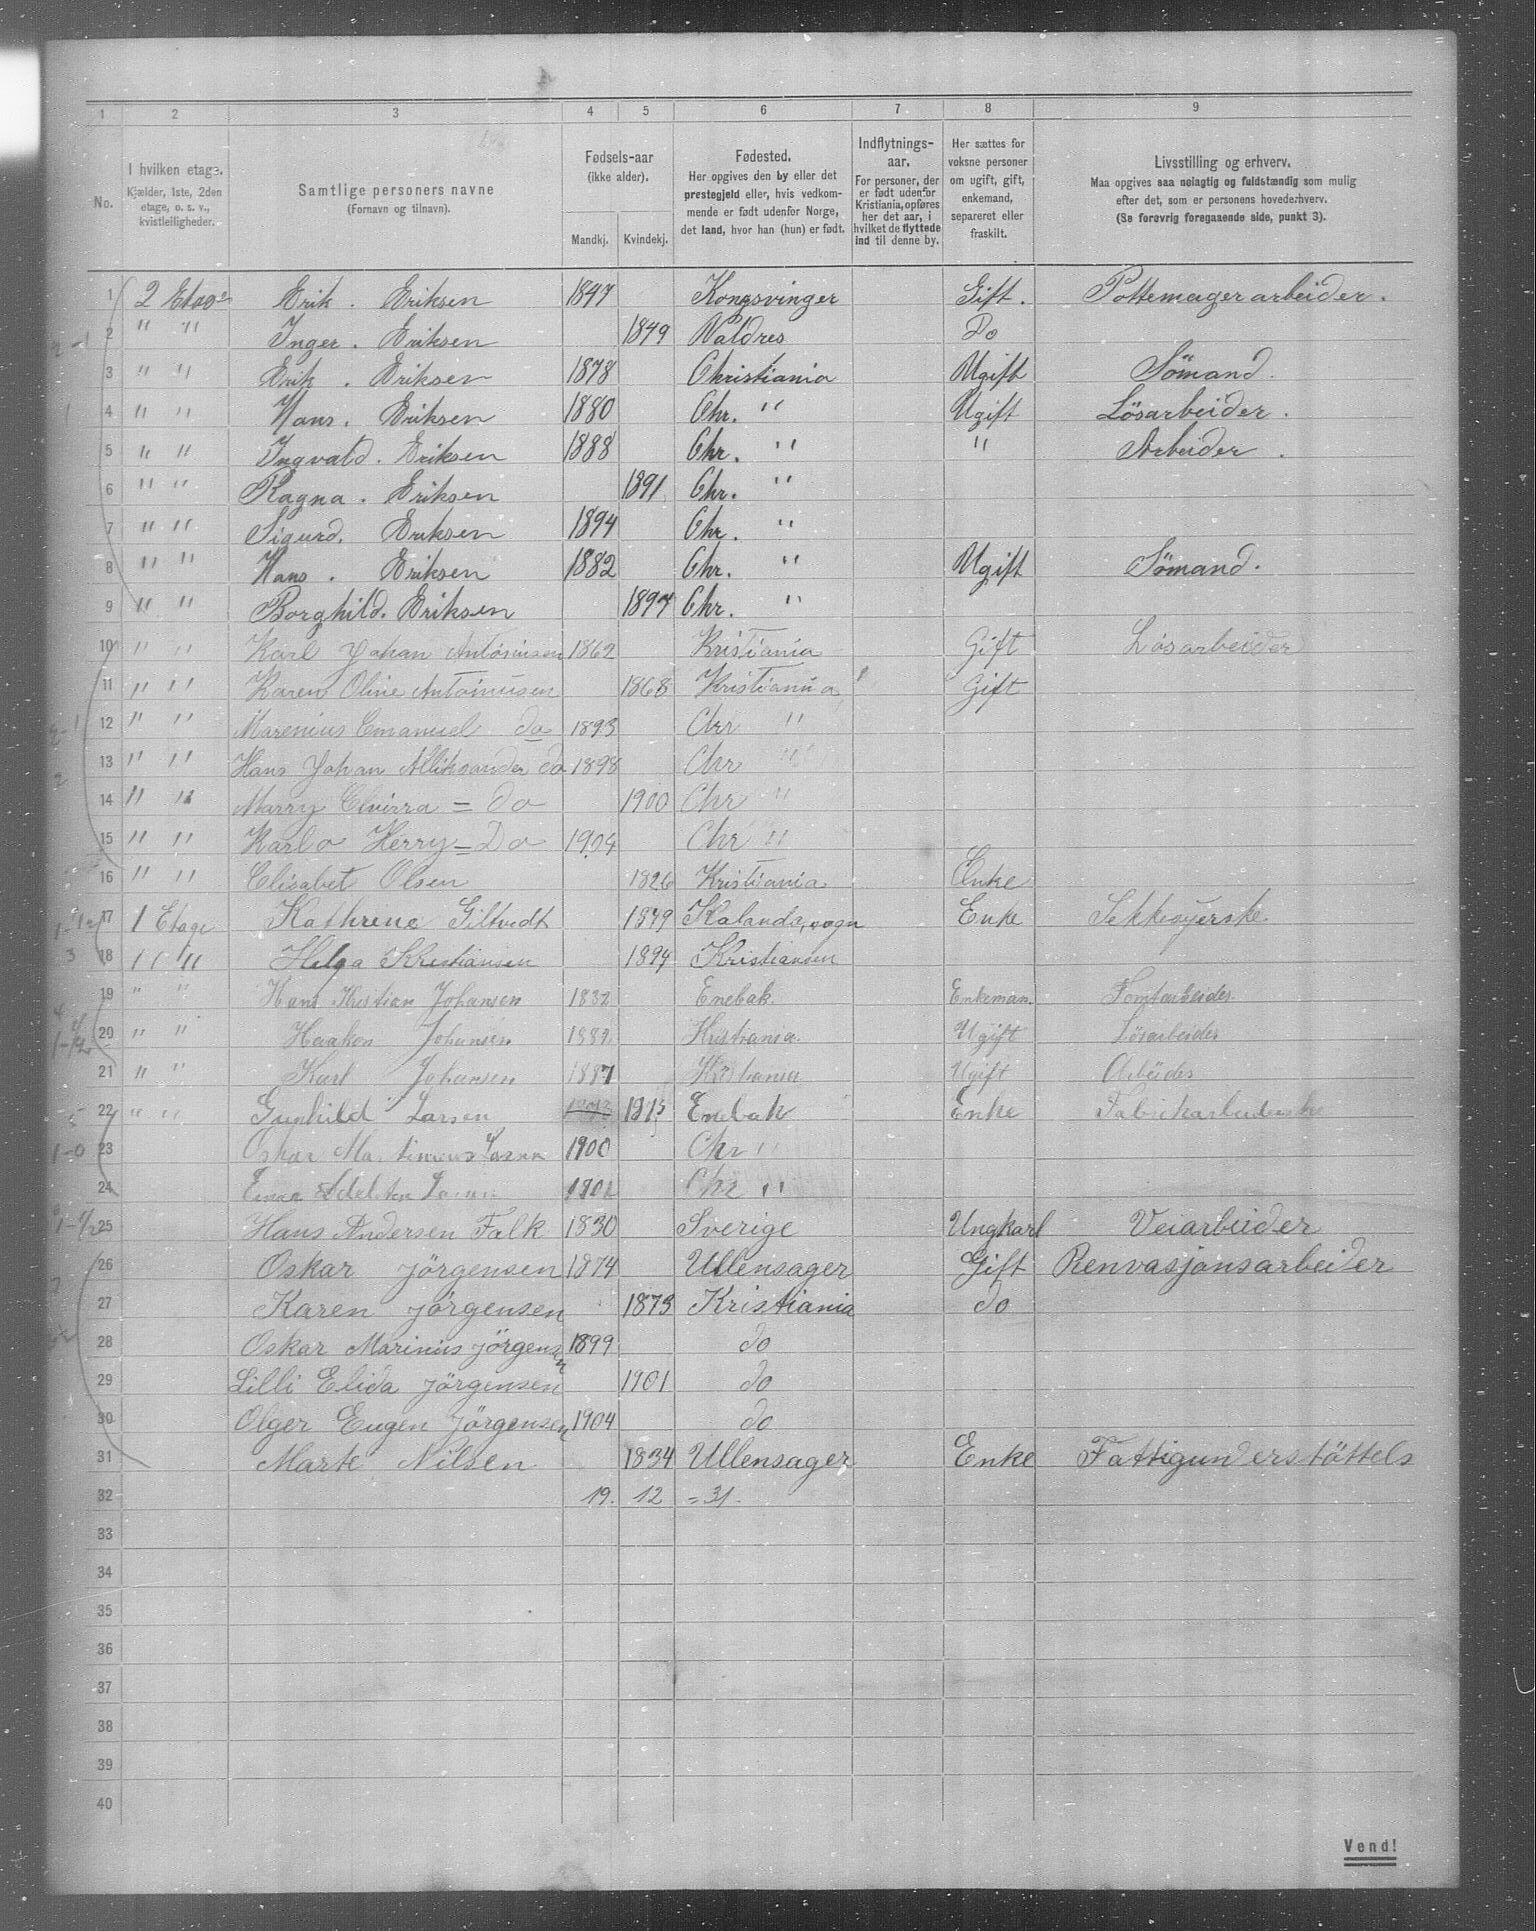 1 2 3 4 5 6 7 8 9
No.
I hvilken etage.
Kjælder, 1ste, 2den
etage, o. s. v.,
kvistleiligheder.
Samtlige personers navne
(Fornavn og tilnavn).
Fødsels-aar
(ikke alder).
Mandkj. Kvindekj.
Fødested.
Her opgives den by eller det
prestegjeld eller, hvis vedkom-
mende er født udenfor Norge,
det land, hvor han (hun) er født.
Indflytnings-
aar.
For personer, der
er født udenfor
Kristiania, opføres
her det aar, i
hvilket de flyttede
ind til denne by.
Her sættes for
voksne personer
om ugift, gift,
enkemand,
separeret eller
fraskilt.
Livsstilling og erhverv.
Maa opgives saa nøiagtig og fuldstændig som mulig
efter det, som er personens hovederhverv.
(Se forøvrig foregaaende side, punkt 3).
1 2 Etage Erik. Eriksen 1847 Kongsvinger Gift. Pottemager arbeider.
2 " " Inger. Eriksen 1849 Valdres Do
3 " " Erik. Eriksen 1878 Christiania Ugift Sömand.
4 " " Hans. Eriksen 1880 Chr. " Ugift Lösarbeider.
5 " " Ingvald. Eriksen 1888 Chr. " " Arbeider.
6 " " Ragna. Eriksen 1891 Chr. "
7 " " Sigurd. Eriksen 1894 Chr. "
8 " " Hans. Eriksen 1882 Chr. " Ugift Sömand.
9 " " Borghild. Eriksen 1897 Chr. "
10 " " Karl Johan Antoinisen 1862 Kristiania Gift Løsarbeider
11 " " Karen Oline Antoinisen 1868 Kristiania Gift
12 " " Marenius Emanuel do 1893 Chr "
13 " " Hans Johan Alliksander do 1898 Chr "
14 " " Marry Elvirra = Do 1900 Chr "
15 " " Karlo Herry = Do 1904 Chr "
16 " " Elisabet Olsen 1826 Kristiania Enke
17 1 Etage Kathrene Giltvedt 1849 Enke Sekkesyerske
18 " " Helga Kristiansen 1894 Kristiansen
19 " " Hans Kristian Johansen 1832 Enebak. Enkeman. Tomtarbeider.
20 " " Haakon Johansen Kristiania. Ugift Lösarbeider
21 " " Karl Johansen 1887 Kristiania Ugift Arbeider
22 " " Gunhild Larsen Enebak Enke Fabrikarbeiderske
23 Oskar Martinius Larsen 1900 Chr "
24 Einar 1901 Chr "
25 Hans Andersen Falk 1830 Sverige Ungkarl Veiarbeider
26 Oskar Jörgensen 1874 Ullensager Gift Renvasjonsarbeider
27 Karen Jörgensen 1873 Kristiania do
28 Oskar Marinius Jörgensen 1899 do
29 Lilli Elida Jörgensen 1901 do
30 Olger Eugen Jörgensen 1904 do
31 Marte Nilsen 1834 Ullensager Enke Fattigunderstöttels
32 19. 12 = 31.
33
34
35
36
37
38
39
40
Vend!